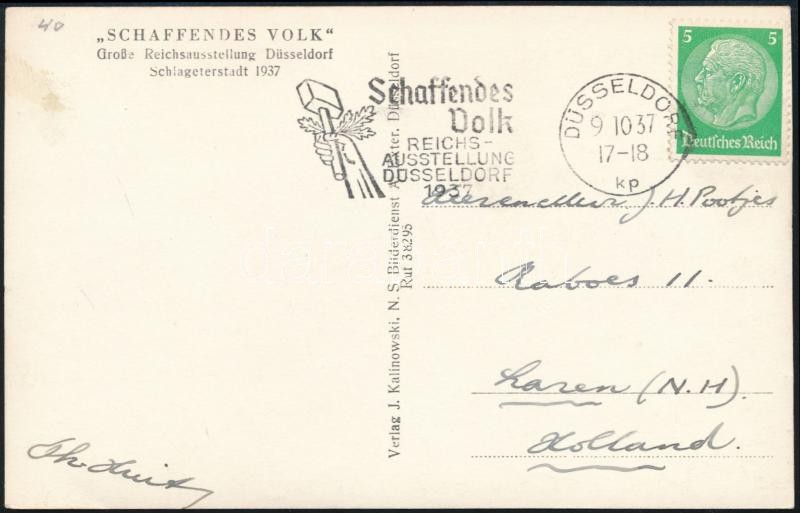 40
„SCHAFFENDES VOLK“
Große Reichsausstellung Düsseldorf
Schlageterstadt 1937
Schaffendes
Volk
REICHS-
AUSSTELLUNG
DÜSSELDORF
1937
DÜSSELDORF
9 10 37
17-18
kp
5 5
Deutsches Reich
Verlag J. Kalinowski, N. S. Bilderdienst Düsseldorf
Ruf 38295
J. H. Pootjes
Raboes 11.
Laren (N.H).
Holland.